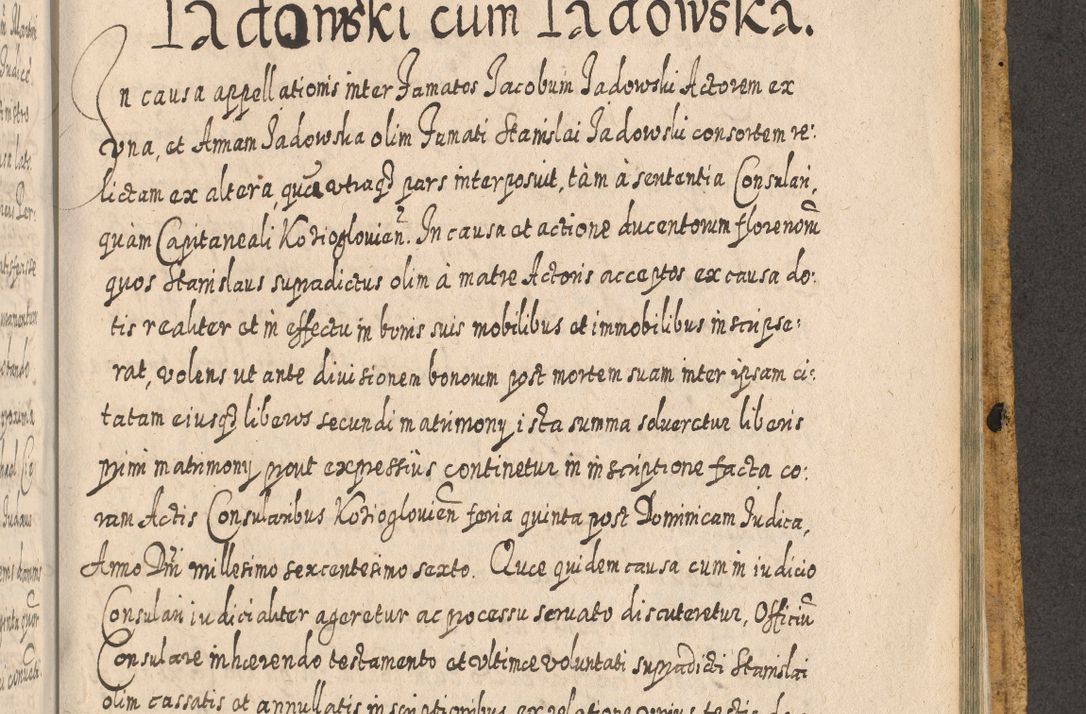 Jadowski cum Jadowska.
In causa appellationis inter Famatos Jacobum Jadowski Actorem ex
vna, et Annam Jadowska olim Famati Stanislai Jadowski consortem re:
lictam ex altera, quã vtraqꝫ pars interposuit, tàm à sententia Consulari,
quàm Capitaneali Koziogloviēn. In causa et actione ducentorum florenorũ
quos Stanislaus supradictus olim à matre Actoris acceptos ex causa do:
tis realiter et in effectu in bonis suis mobilibus et immobilibus inscripse:
rat, volens ut ante divisionem bonorum post mortem suam inter ipsam ci:
tatam eiusqꝫ liberos secundi matrimony ista summa solveretur liberis
primi matrimony prout expressiùs continetur in inscriptione facta co:
ram Actis Consularibus Koziogloviēn feria quinta post Dominicam Judica,
Anno Dñi millesimo sexcentesimo sexto. Quæ quidem causa cum in iudicio
Consulari iudicialiter ageretur ac processu servato discuteretur, Officiũ
Consulare inhærendo testamento et vltimæ voluntati supradicti Stanislai
olim cassatis et annullatis inscriptionibus ex relatione unius testis